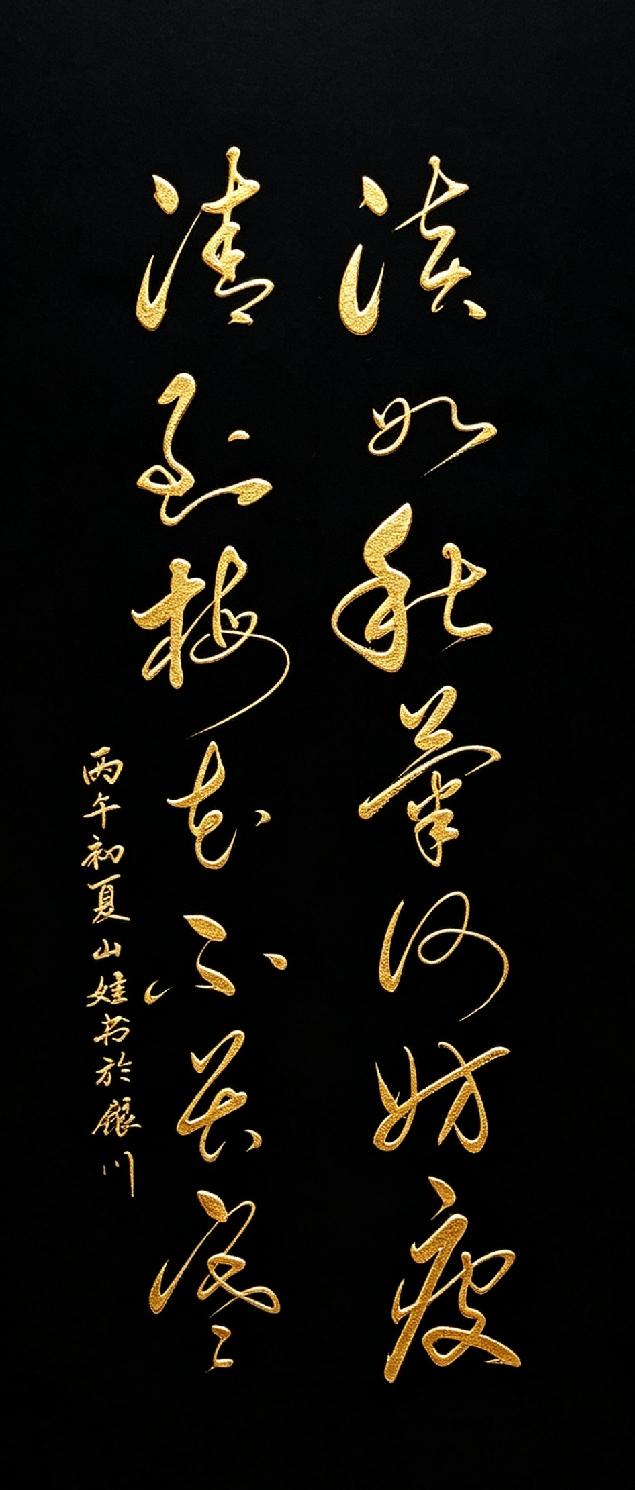 淡如秋菊何妨瘦
清到梅花不畏寒
丙午初夏山娃书於银川